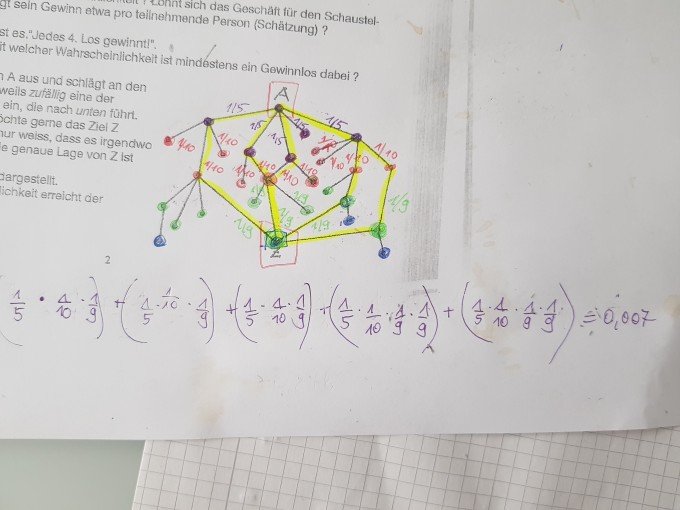 ? Lohnt sich das Geschäft für den Schaustel-
gt sein Gewinn etwa pro teilnehmende Person (Schätzung) ?
st es."Jedes 4. Los gewinnt!".
it welcher Wahrscheinlichkeit ist mindestens ein Gewinnlos dabei ?
A aus und schlägt an den
weils zufällig eine der
ein, die nach unten führt.
öchte gerne das Ziel Z
nur weiss, dass es irgendwo
e genaue Lage von Z ist
dargestellt.
lichkeit erreicht der
A
1/5 1/5
1/5 1/5
1/10 1/10 1/10
1/10 1/10 1/10 1/10 1/10
1/9 1/9
1/9 1/9 1/9
Z
2
1/5 · 1/10 · 1/9) + (1/5 · 1/10 · 1/9) + (1/5 · 1/10 · 1/9) + (1/5 · 1/10 · 1/9 · 1/9) + (1/5 · 1/10 · 1/9 · 1/9) = 0,007